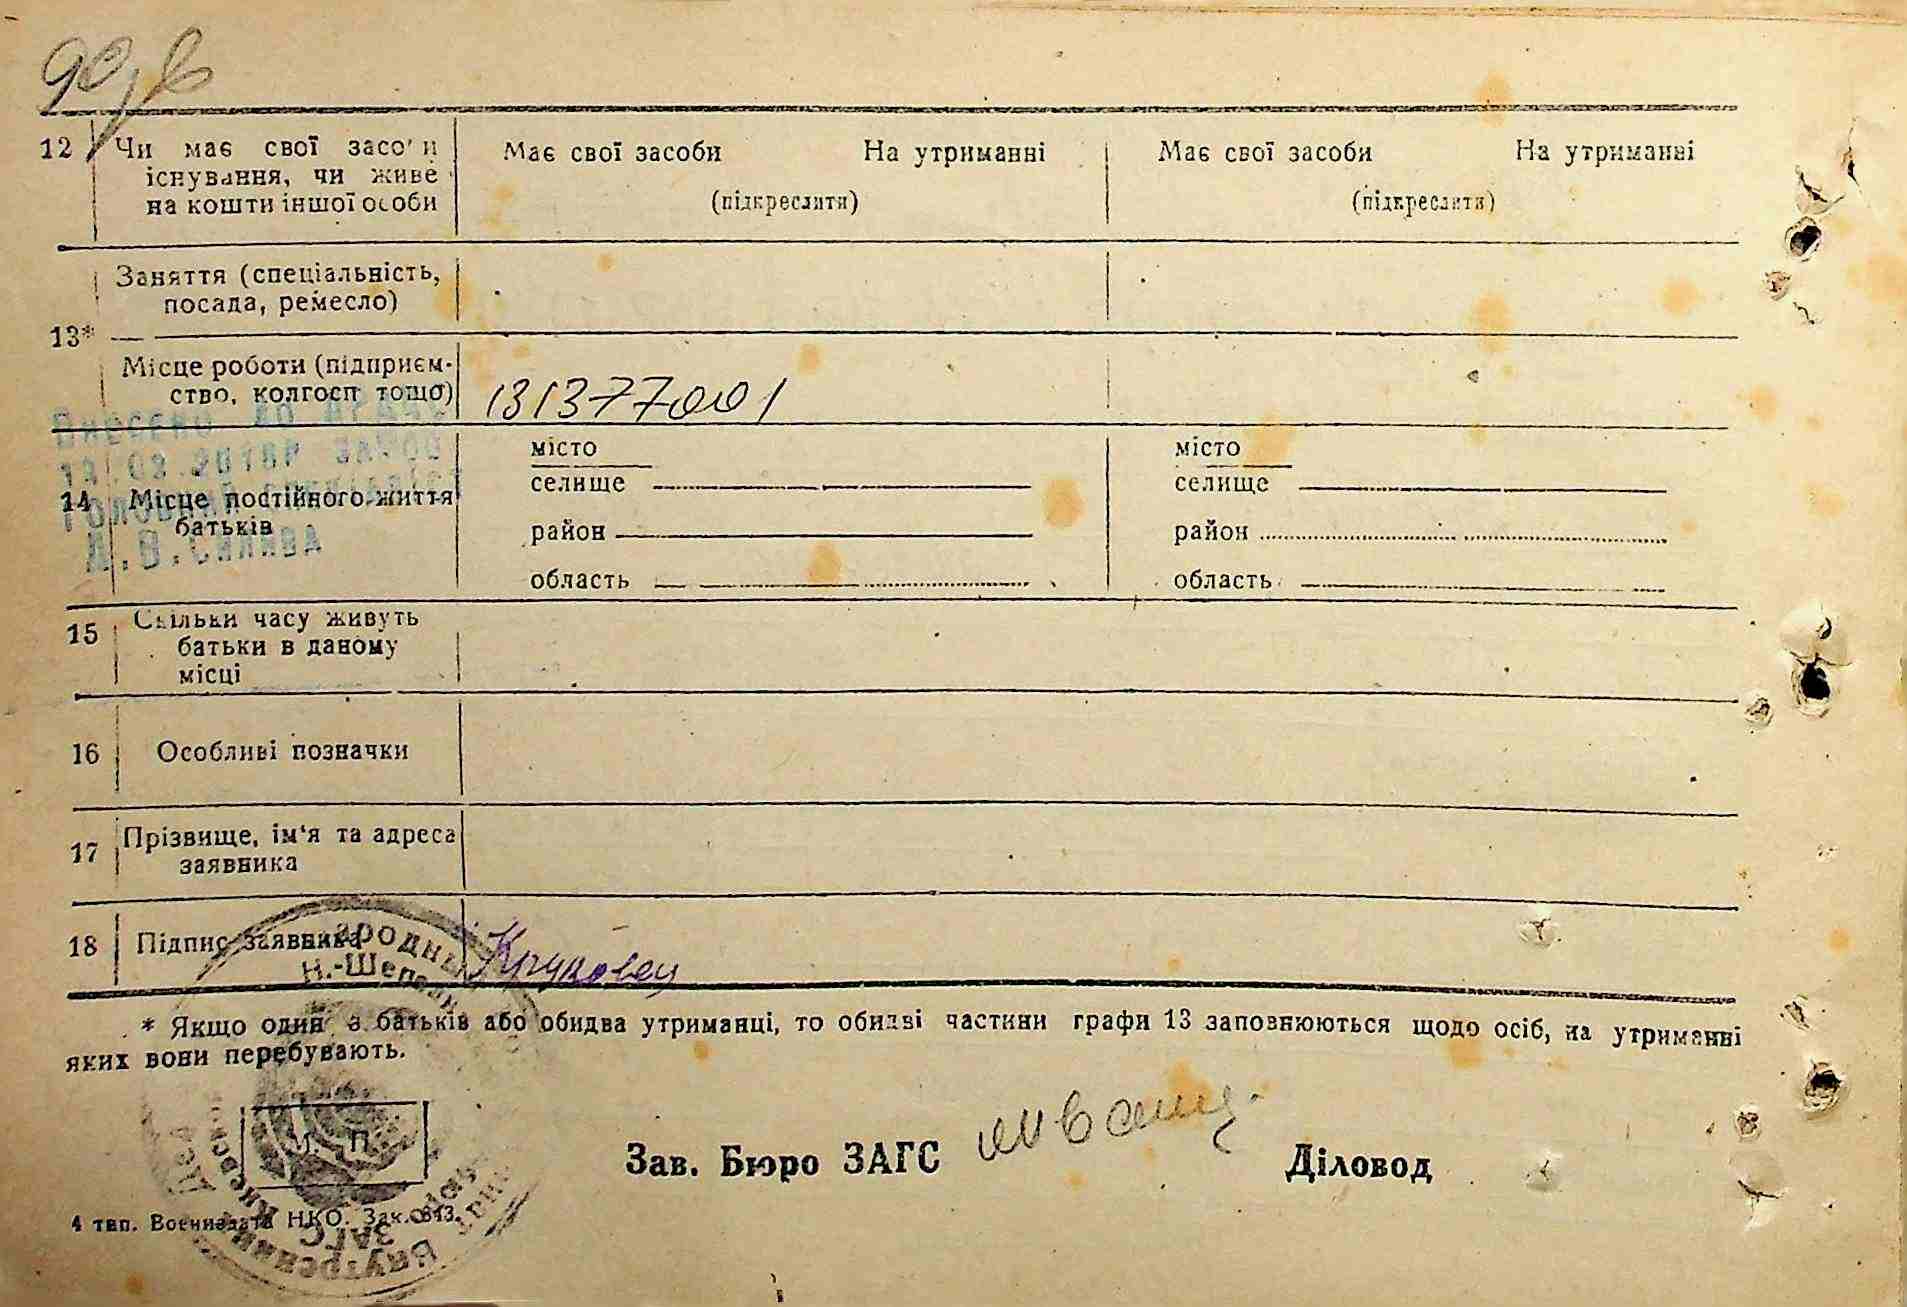 12 Чи має свої засоби Має свої засоби На утриманні Має свої засоби На утриманні
існування, чи живе
на кошти іншої особи (підкреслити) (підкреслити)
Заняття (спеціальність,
посада, ремесло)
13*
Місце роботи (підприєм-
ство, колгосп тощо) 131377001
Внесено до ДРАЦС
місто місто
селище селище
14 Місце постійного життя
батьків
район район
область область
15 Скільки часу живуть
батьки в даному
місці
16 Особливі позначки
17 Прізвище, ім'я та адреса
заявника
18 Підпис заявника
* Якщо один з батьків або обидва утриманці, то обидві частини графи 13 заповнюються щодо осіб, на утриманні
яких вони перебувають.
М. П.
Зав. Бюро ЗАГС Діловод
4 тип. Воениздата НКО. Зак. 643.